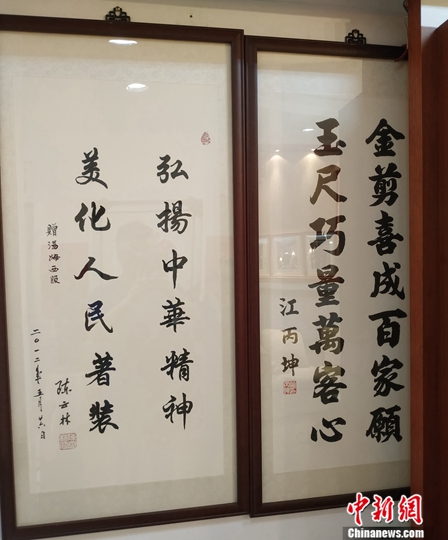 金剪喜成百家願
玉尺巧量萬客心
江丙坤
弘揚中華精神
美化人民著裝
贈湯姆西服
二〇一二年五月日
陈云林
中新网
Chinanews.com